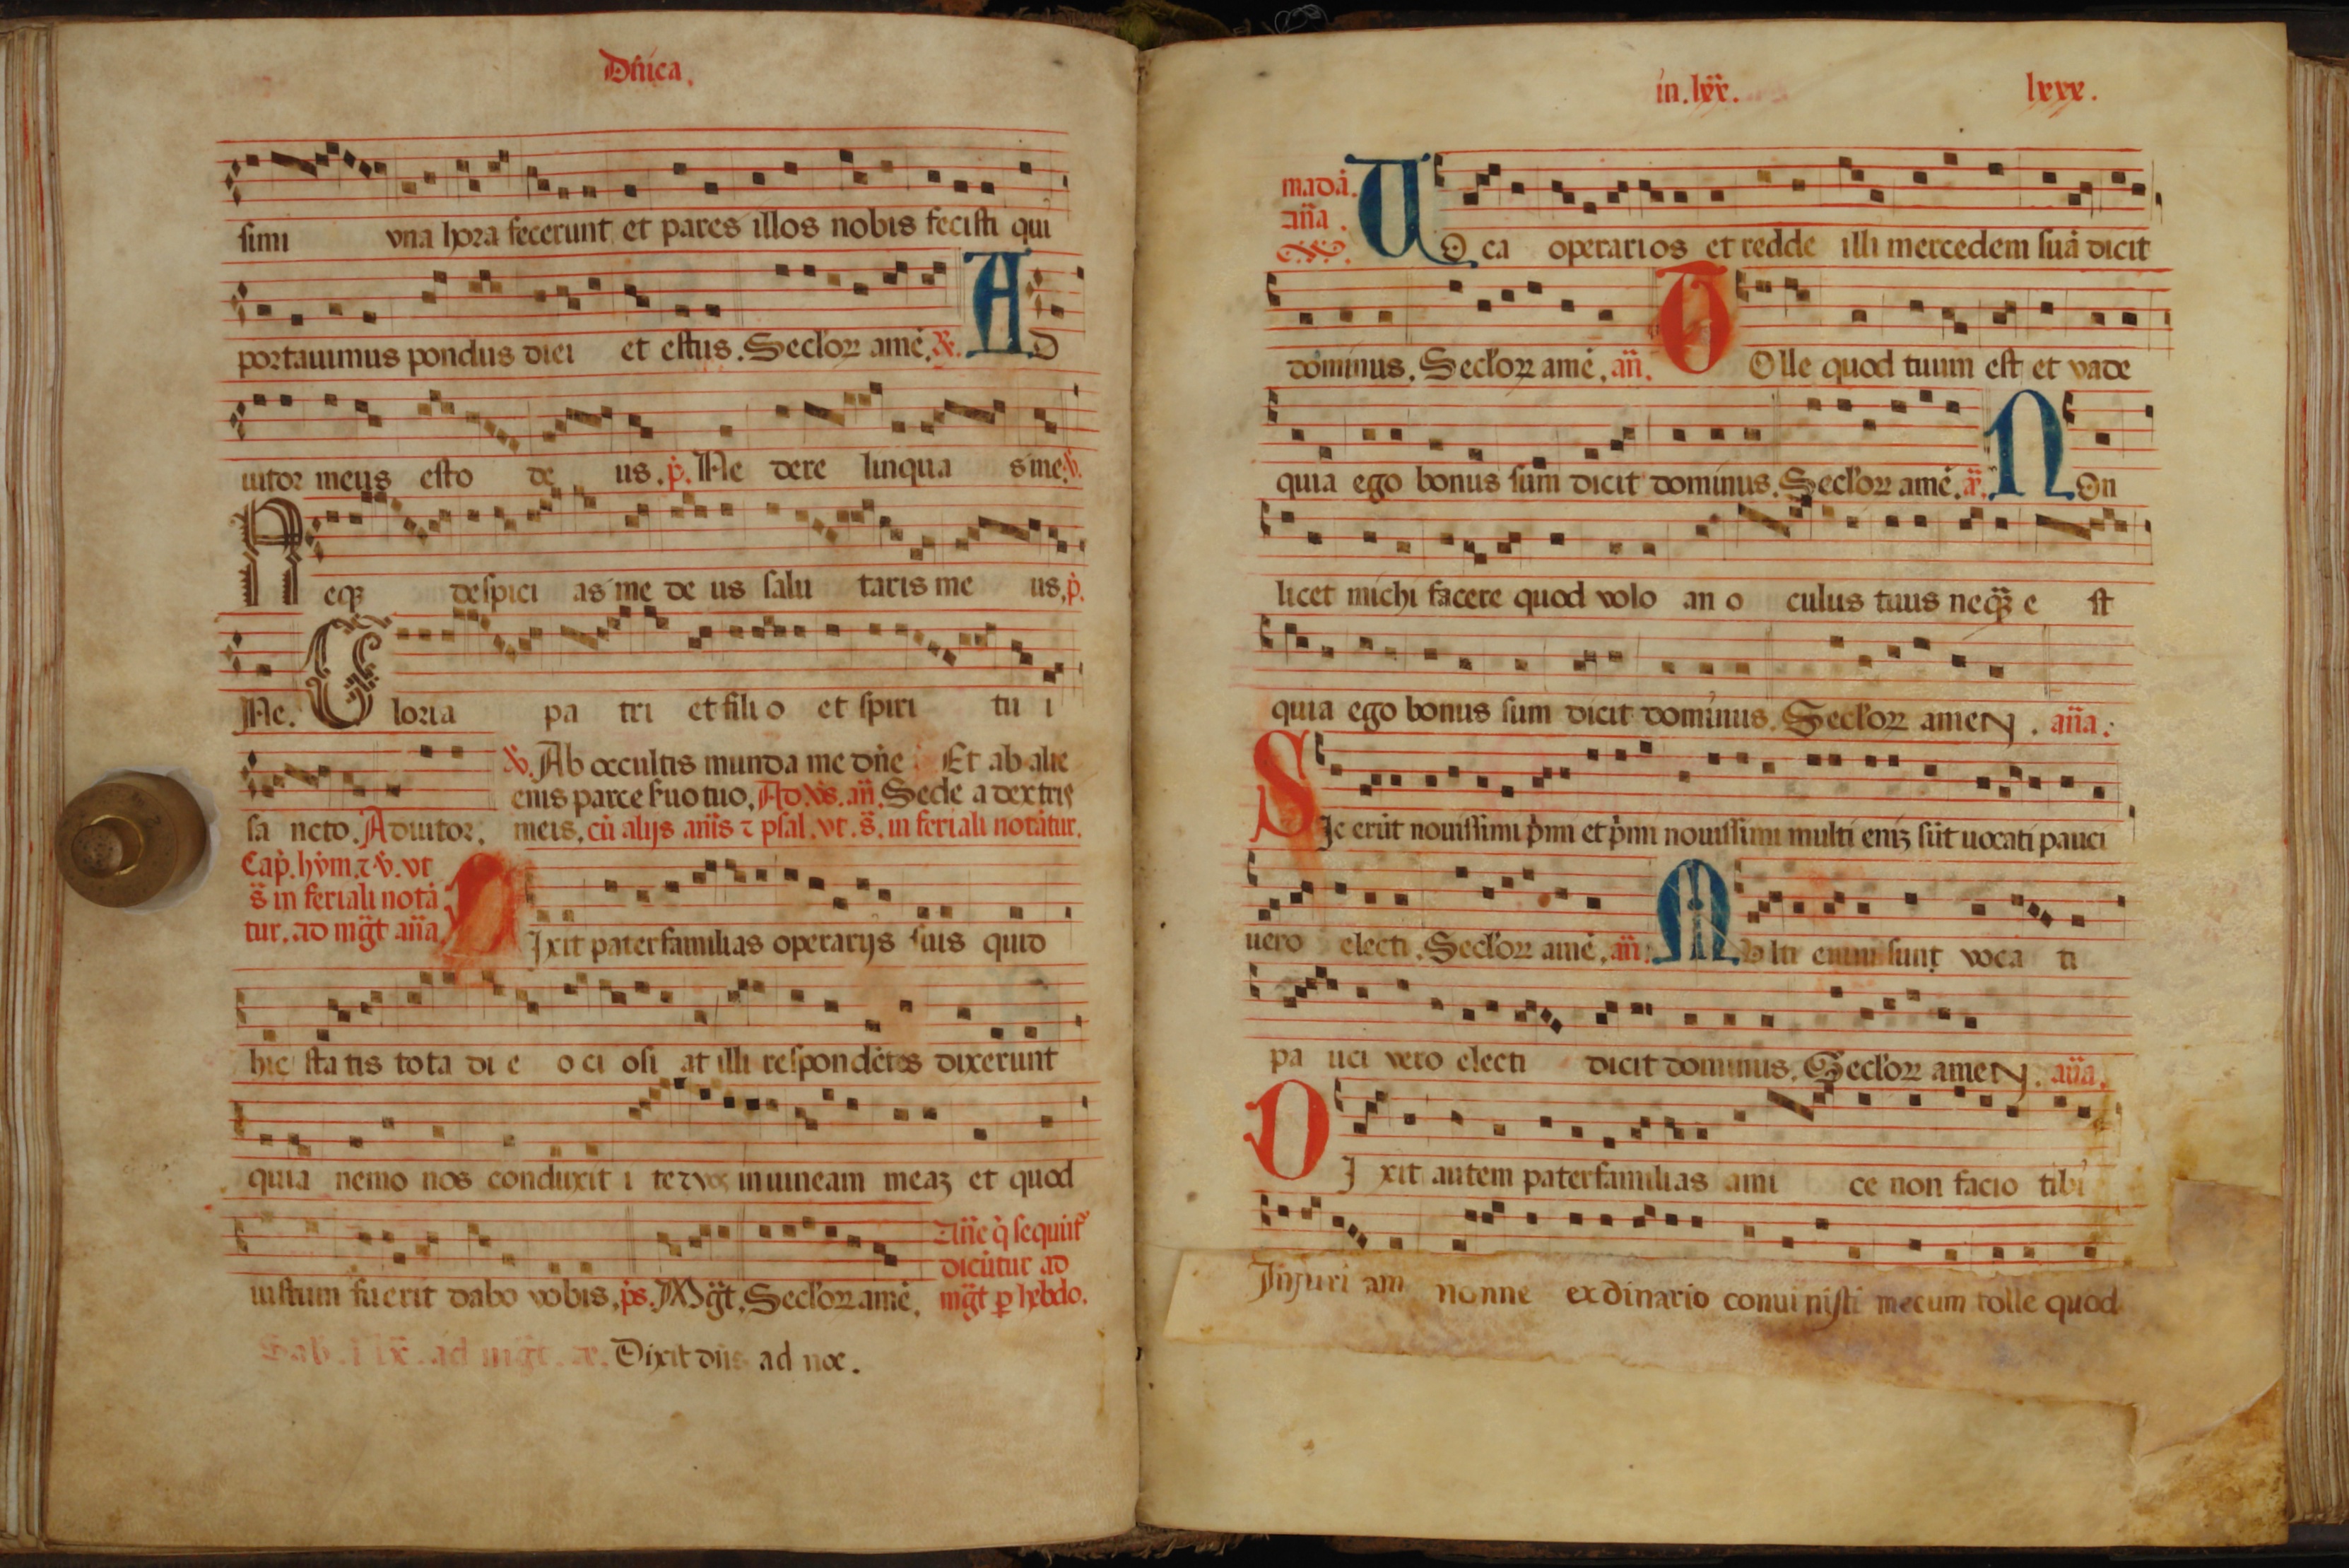 Dñica.
simi vna hora fecerunt et pares illos nobis fecisti qui
portauimus pondus diei et estus. Seclorꝝ amē. ℟. AD
iutor meus esto de us. p̃. Ne dere linqua s me. ℣.
Neqꝫ despici as me de us salu taris me us. p̃.
Ne. Gloria pa tri et fili o et spiri tu i
℣. Ab occultis munda me dñe Et ab alie
enis parce ẜuo tuo. Ad ℣s. añ. Sede a dextris
sa ncto. Adiutor. meis. cũ alijs añis ⁊ psal. vt. s̃. in feriali notãtur.
Cap̃. hỹm. ⁊ ℣. vt
s̃ in feriali notã
tur. ad mg̃t aña
Dixit paterfamilias operarijs suis quid
hic sta tis tota di e o ci osi at illi respondētes dixerunt
quia nemo nos conduxit i te ⁊ vos in uineam meaꝫ et quod
iustum fuerit dabo vobis. p̃s. Mg̃t. Seclorꝝ amē.
Añe q̃ sequũt̃
dicũtur ad
mg̃t ꝑ hebdo.
Dixit dñs ad noe.
in. lxx̃. lxxx.
madã.
aña.
Uoca operarios et redde illi mercedem suã dicit
dominus. Seclorꝝ amē. añ. TOlle quod tuum est et vade
quia ego bonus sum dicit dominus. Seclorꝝ amē. ã. NOn
licet michi facere quod volo an o culus tuus neqꝫ e st
quia ego bonus sum dicit dominus. Seclorꝝ ameN. aña.
SIc erũt nouissimi p̃mi et p̃mi nouissimi multi eniꝫ sũt uocati pauci
uero electi. Seclorꝝ amē. añ. Multi enim sunt voca ti
pa uci vero electi dicit dominus. Seclorꝝ ameN. aña.
DI xit autem paterfamilias ami ce non facio tibi
Injuri am nonne ex dinario convinisti mecum tolle quod